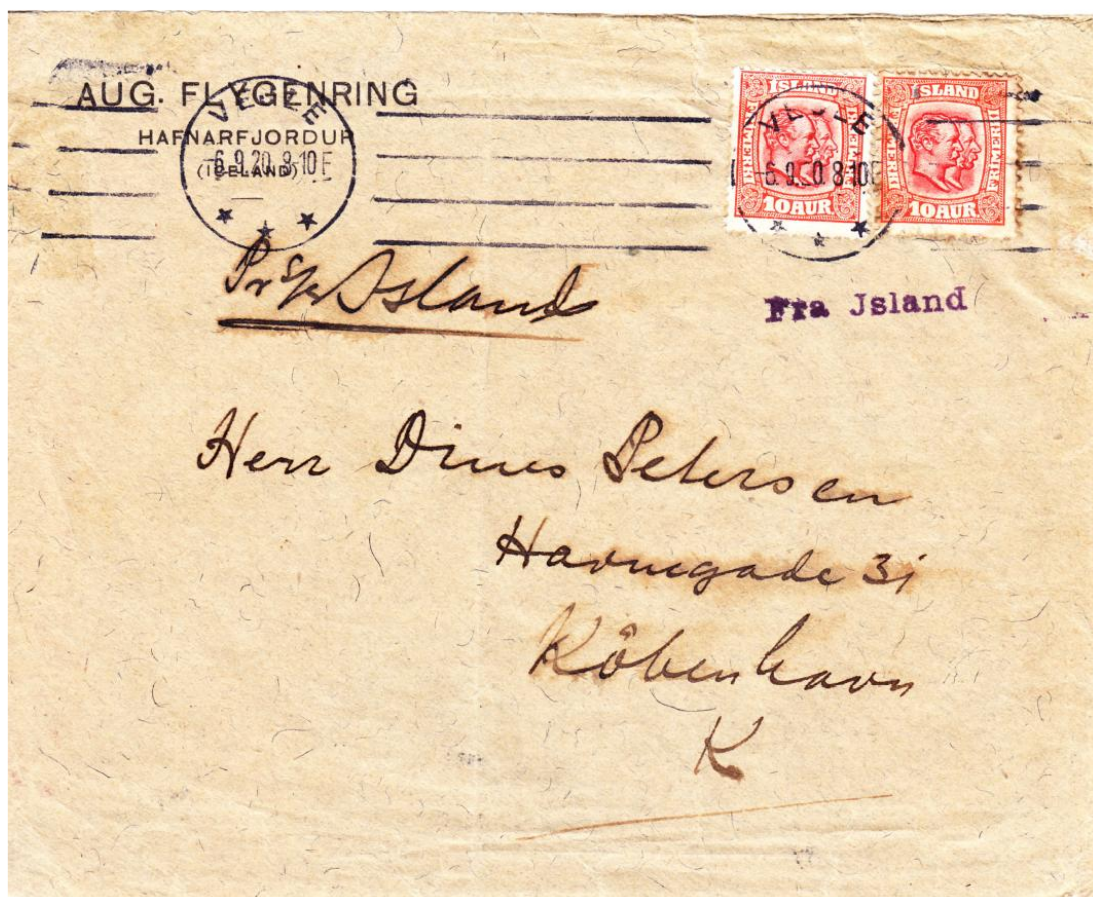 AUG. FLYGENRING
HAFNARFJORDUR
(ICELAND)
VEJLE
-6.9.20. 8-10 F
VEJLE
-6.9.20 8-10 F
ÍSLAND
FRIMERKI
10 AUR
ÍSLAND
FRIMERKI
10 AUR
Pr s/s Island
Fra Jsland
Herr Dines Petersen
Havnegade 31
Köbenhavn
K